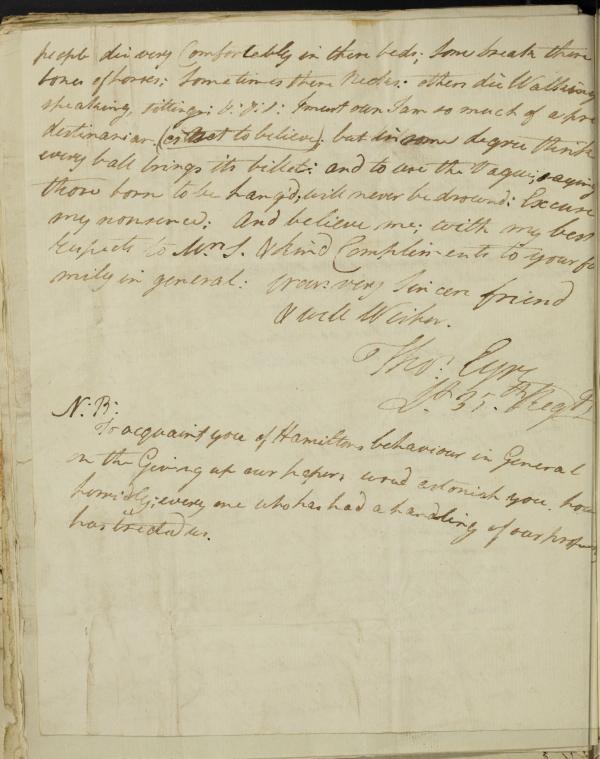 people die very Comfortebly in there beds; some break there
bones of horses; sometimes there Necks: others die Walking
speaking, sitting; &: &: &: I must own I am so much of a pre
distinarian (as not to believe) but in some degree think
every ball brings its billet: and to use the Vague, saying
those born to be hang'd, will never be drownd: Excuse
my nonsence; And believe me; with my best
respects to Mrs S. & kind Complim-ents to your fa
mily in general: your very Sincere friend
& well Wisher.
Thos. Eyre
Lt. 35. Regt.
N: B:
To acquaint you of Hamiltons behaviour in General
in the Giving up our papers woud astonish you. how
horridly; every one who has had a handling of our
has treated us.